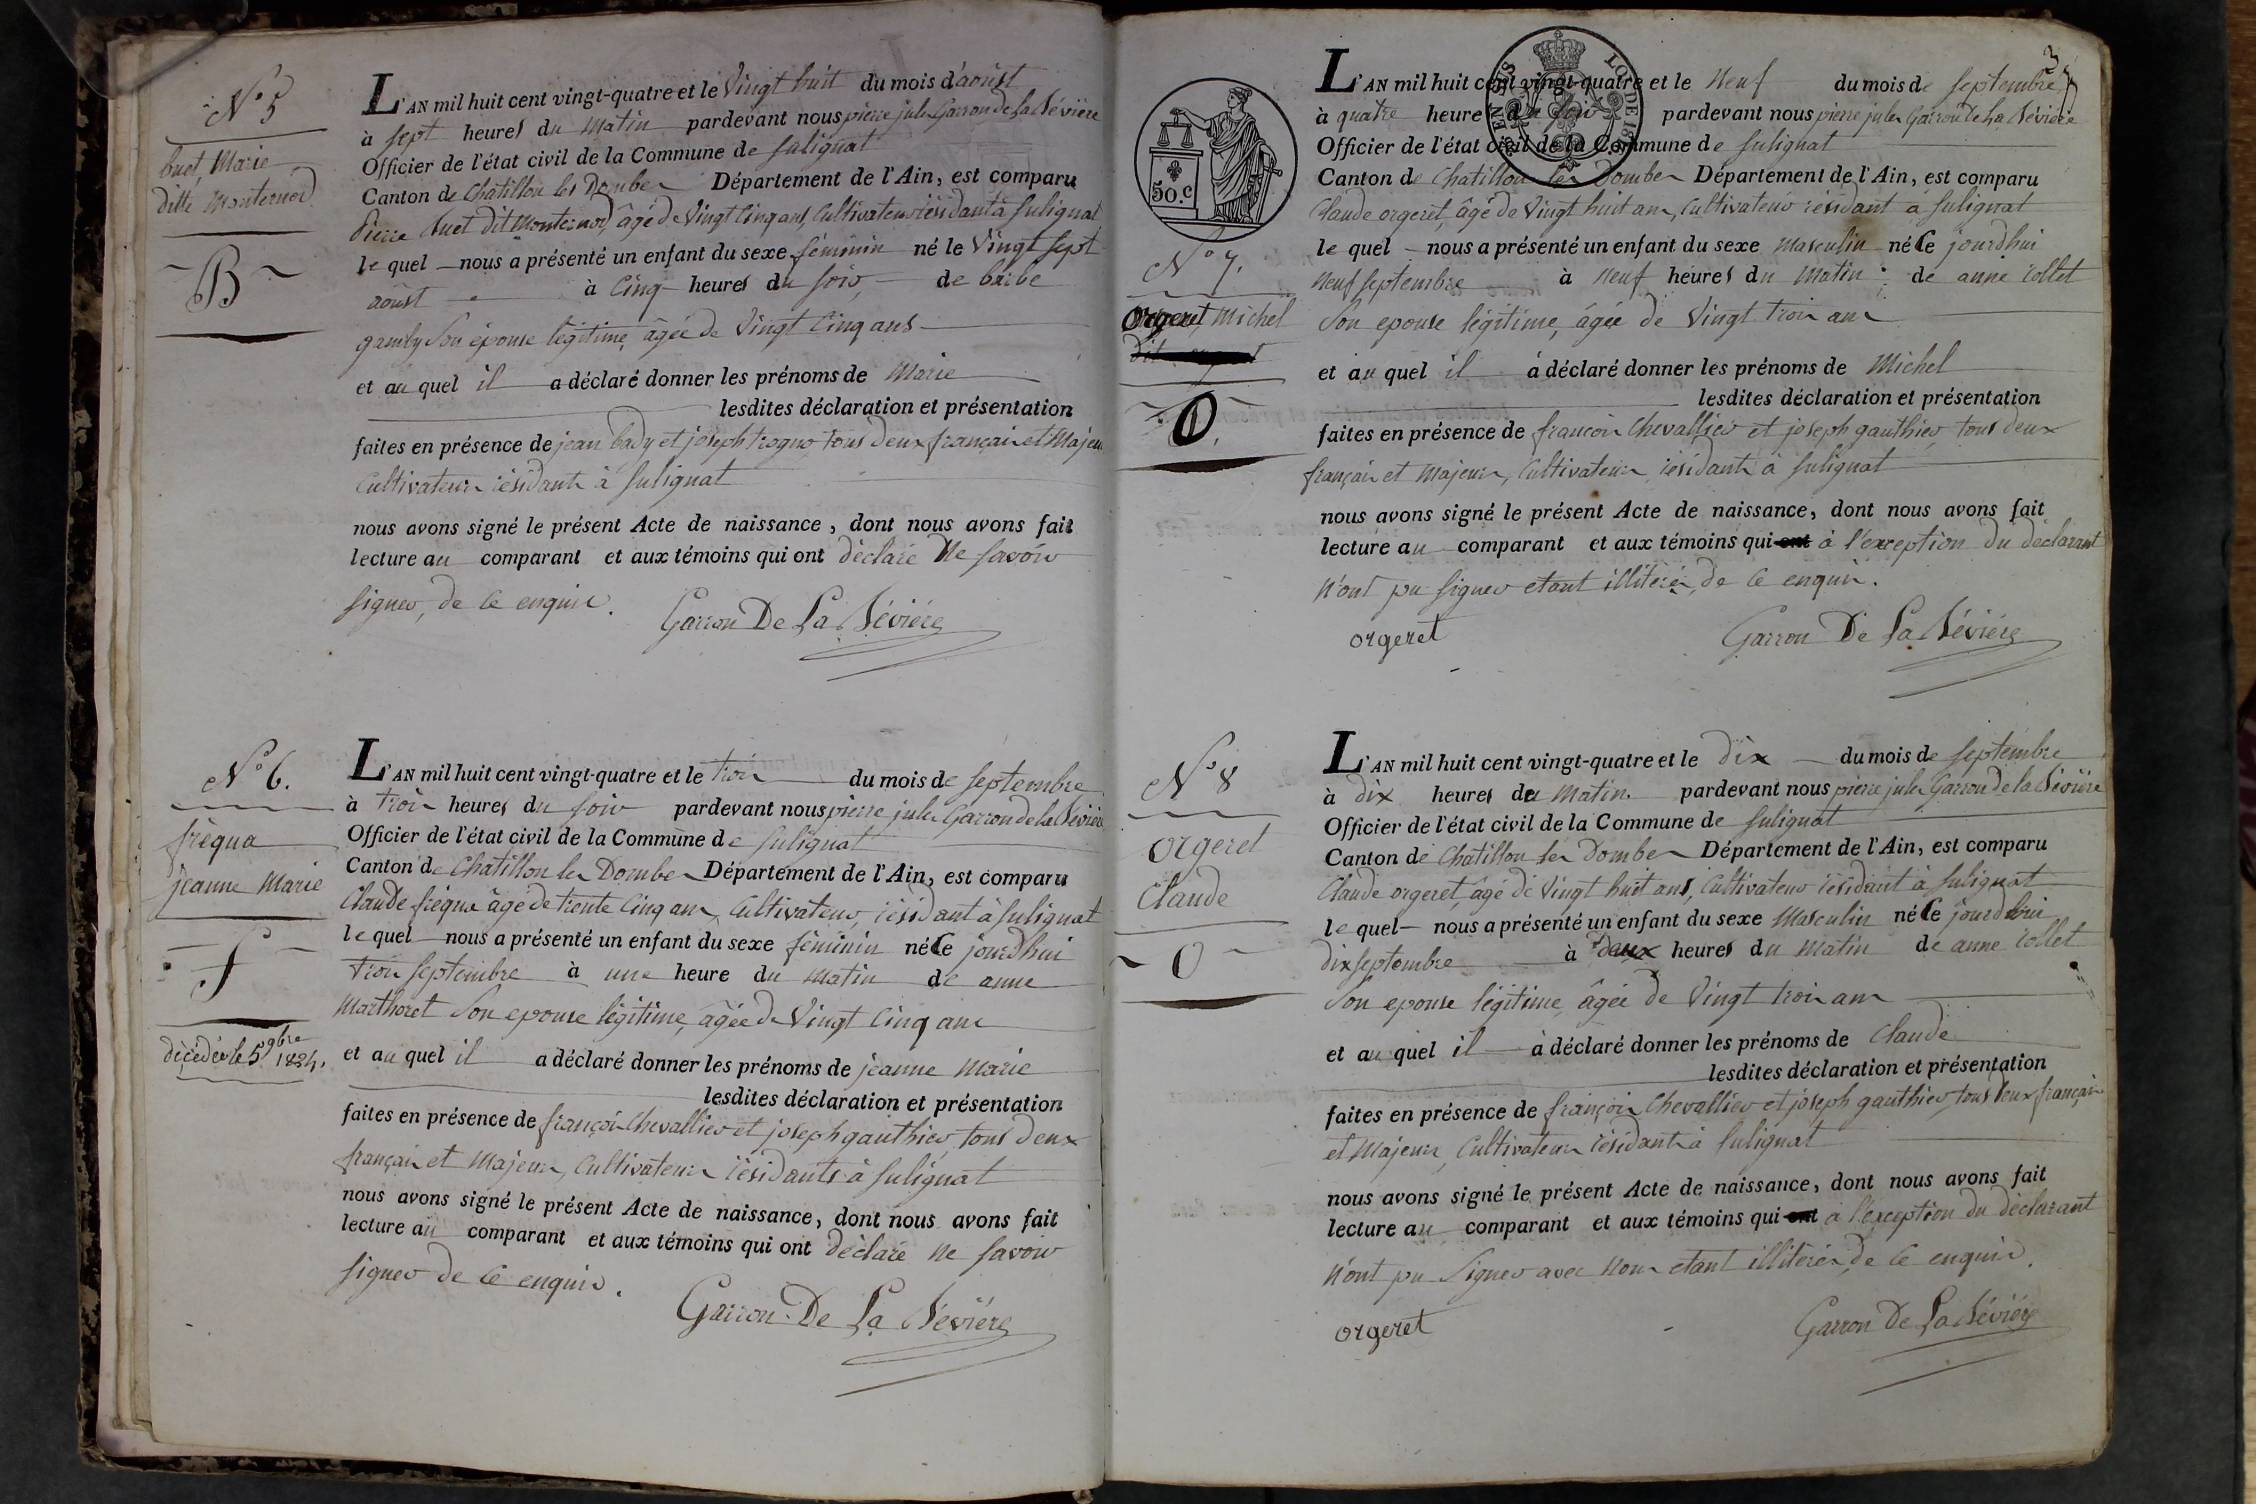 N° 5
buet Marie
ditte Monternod
B
L'AN mil huit cent vingt-quatre et le Vingt huit du mois d'août
à sept heures du Matin pardevant nous pierre jules Garron de la Bévière
Officier de l'état civil de la Commune de Sulignat
Canton de Chatillon les Dombes Département de l'Ain, est comparu
Pierre buet dit Monternod, âgé de Vingt Cinq ans, Cultivateur résidant à Sulignat
le quel nous a présenté un enfant du sexe féminin né le Vingt sept
août à Cinq heures du soir, de barbe
gamby Son épouse légitime, âgée de Vingt Cinq ans
et au quel il a déclaré donner les prénoms de Marie
lesdites déclaration et présentation
faites en présence de jean bady et joseph trogno tous deux français et Majeurs
Cultivateurs résidants à Sulignat
nous avons signé le présent Acte de naissance, dont nous avons fait
lecture au comparant et aux témoins qui ont déclaré Ne Savoir
Signer, de Ce enquis.
Garron De La Bévière
N° 6.
fréqua
jeanne Marie
f
décédée le 5 9bre 1824.
L'AN mil huit cent vingt-quatre et le trois du mois de Septembre
à trois heures du soir pardevant nous pierre jules Garron de la Bévière
Officier de l'état civil de la Commune de Sulignat
Canton de Chatillon les Dombes Département de l'Ain, est comparu
Claude fréqua âgé de trente Cinq ans, Cultivateur, résidant à Sulignat
le quel nous a présenté un enfant du sexe féminin né Ce jourdhui
trois Septembre à une heure du Matin de anne
Marthoret Son epouse légitime, âgée de Vingt Cinq ans
et au quel il a déclaré donner les prénoms de jeanne Marie
lesdites déclaration et présentation
faites en présence de françois Chevallier et joseph gauthier, tous deux
français et Majeurs, Cultivateurs résidants à Sulignat
nous avons signé le présent Acte de naissance, dont nous avons fait
lecture au comparant et aux témoins qui ont déclaré Ne Savoir
Signer de Ce enquis.
Garron De La Bévière
3
50.c
N° 7.
Orgeret Michel
O
L'AN mil huit cent vingt-quatre et le Neuf du mois de Septembre
à quatre heures du soir pardevant nous pierre jules Garron De La Bévière
Officier de l'état civil de la Commune de Sulignat
Canton de Chatillon les Dombes Département de l'Ain, est comparu
Claude orgeret, âgé de Vingt huit ans, Cultivateur résidant à Sulignat
le quel nous a présenté un enfant du sexe Masculin né Ce jourdhui
Neuf Septembre à Neuf heures du Matin de anne Collet
Son epouse légitime, âgée de Vingt trois ans
et au quel il à déclaré donner les prénoms de Michel
lesdites déclaration et présentation
faites en présence de francois Chevallier et joseph gauthier, tous deux
français et Majeurs, Cultivateurs, résidants à Sulignat
nous avons signé le présent Acte de naissance, dont nous avons fait
lecture au comparant et aux témoins qui ont à l'exception du déclarant
N'ont pu Signer etant illitérés, de Ce enquis.
orgeret
Garron De La Bévière
N° 8
orgeret
Claude
O
L'AN mil huit cent vingt-quatre et le dix du mois de Septembre
à dix heures du Matin pardevant nous pierre jules Garron de la Bévière
Officier de l'état civil de la Commune de Sulignat
Canton de Chatillon les Dombes Département de l'Ain, est comparu
Claude orgeret, âgé de Vingt huit ans, Cultivateur résidant à Sulignat
le quel nous a présenté un enfant du sexe Masculin né Ce jourdhui
dix Septembre à deux heures du Matin de anne Collet
Son epouse légitime, âgée de Vingt trois ans
et au quel il à déclaré donner les prénoms de Claude
lesdites déclaration et présentation
faites en présence de françois Chevallier et joseph gauthier, tous deux français
et Majeurs, Cultivateurs résidants à Sulignat
nous avons signé le présent Acte de naissance, dont nous avons fait
lecture au comparant et aux témoins qui ont à l'exception du déclarant
N'ont pu Signer avec Nous etant illitérés, de Ce enquis.
orgeret
Garron De La Bévière